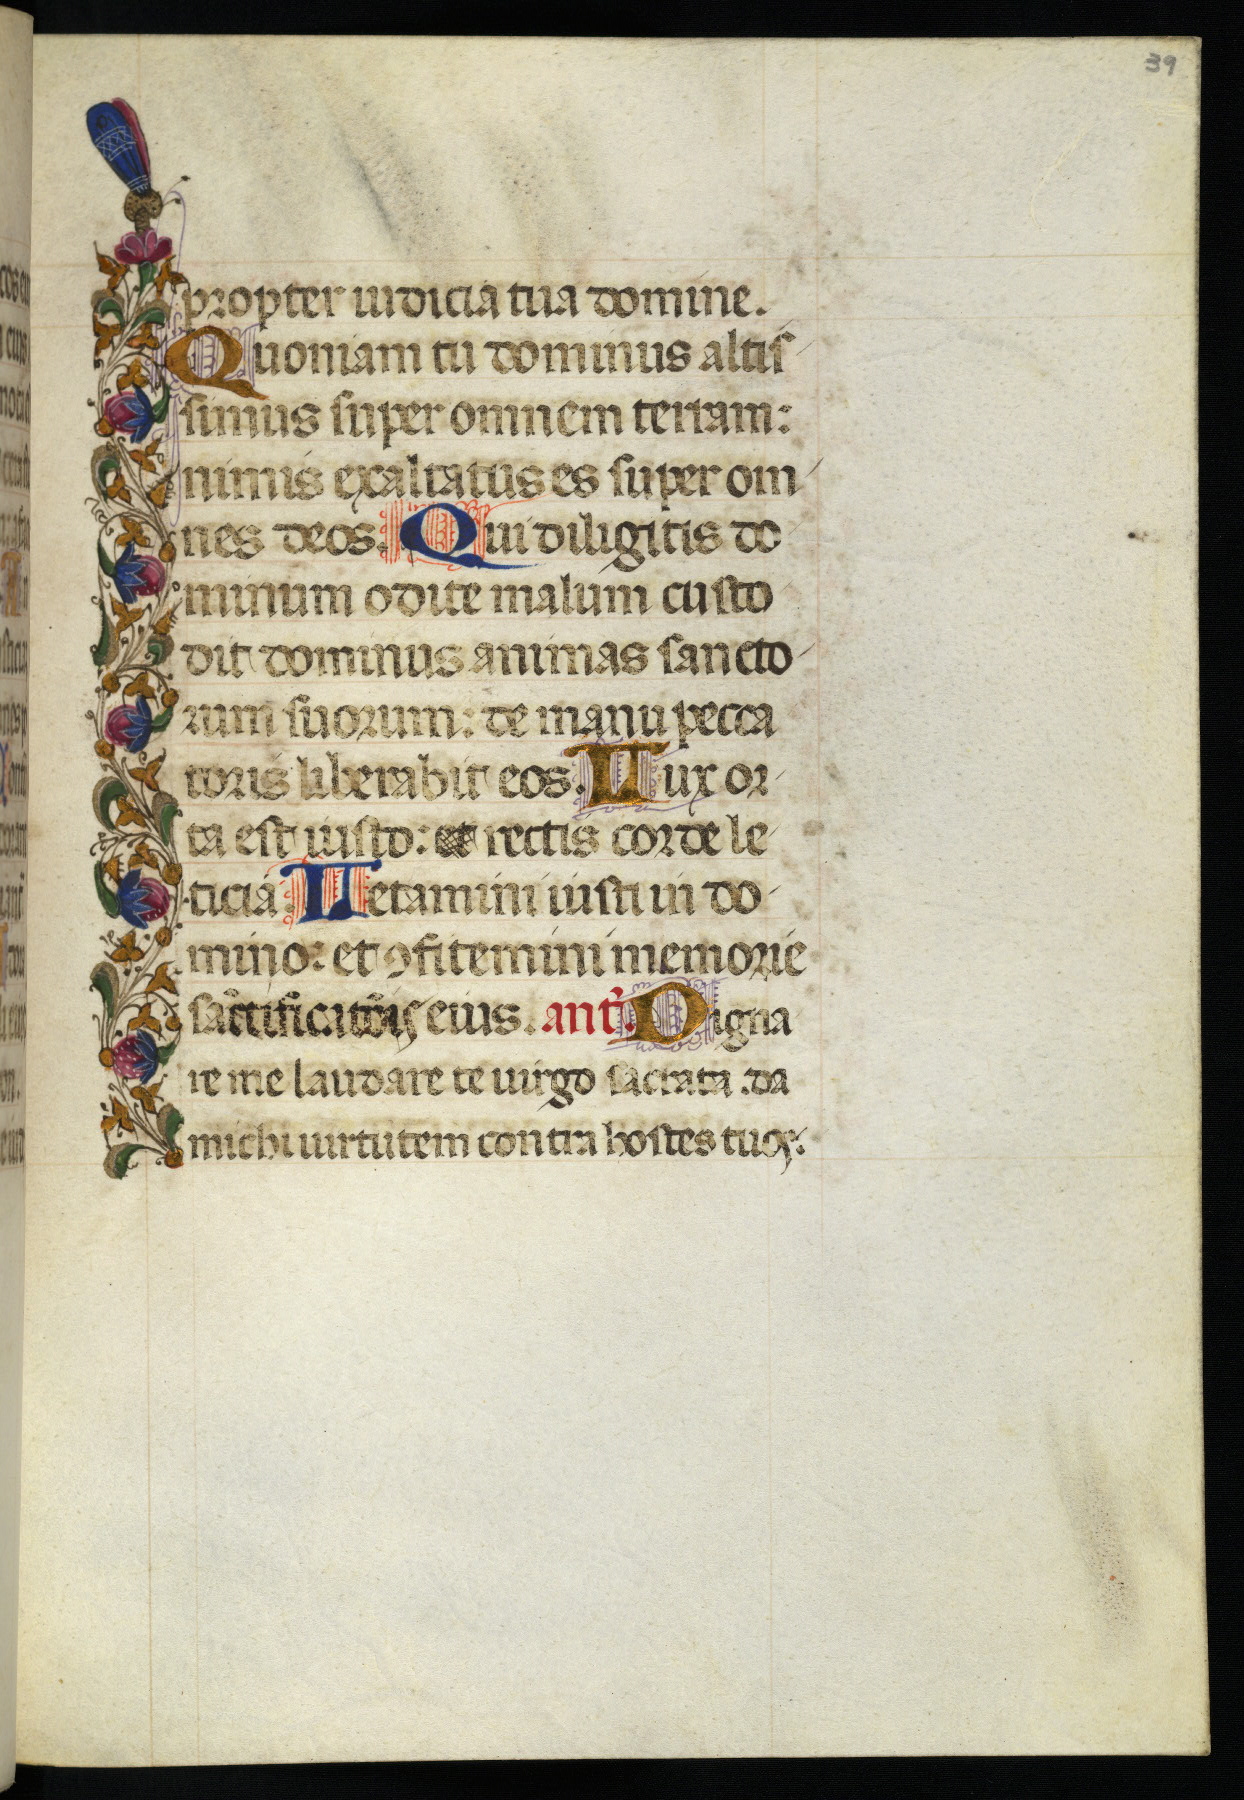 39
propter iudicia tua domine.
Quoniam tu dominus altis
simus super omnem terram:
nimis exaltatus es super om
nes deos. Qui diligitis do
minum odite malum custo
dit dominus animas sancto
rum suorum: de manu pecca
toris liberabit eos. Lux or
ta est iusto: et rectis corde le
ticia. Letamini iusti in do
mino: et ꝯfitemini memorie
eius. ant̃. Digna
re me laudare te uirgo sacrata .da
michi uirtutem contra hostes tuos.